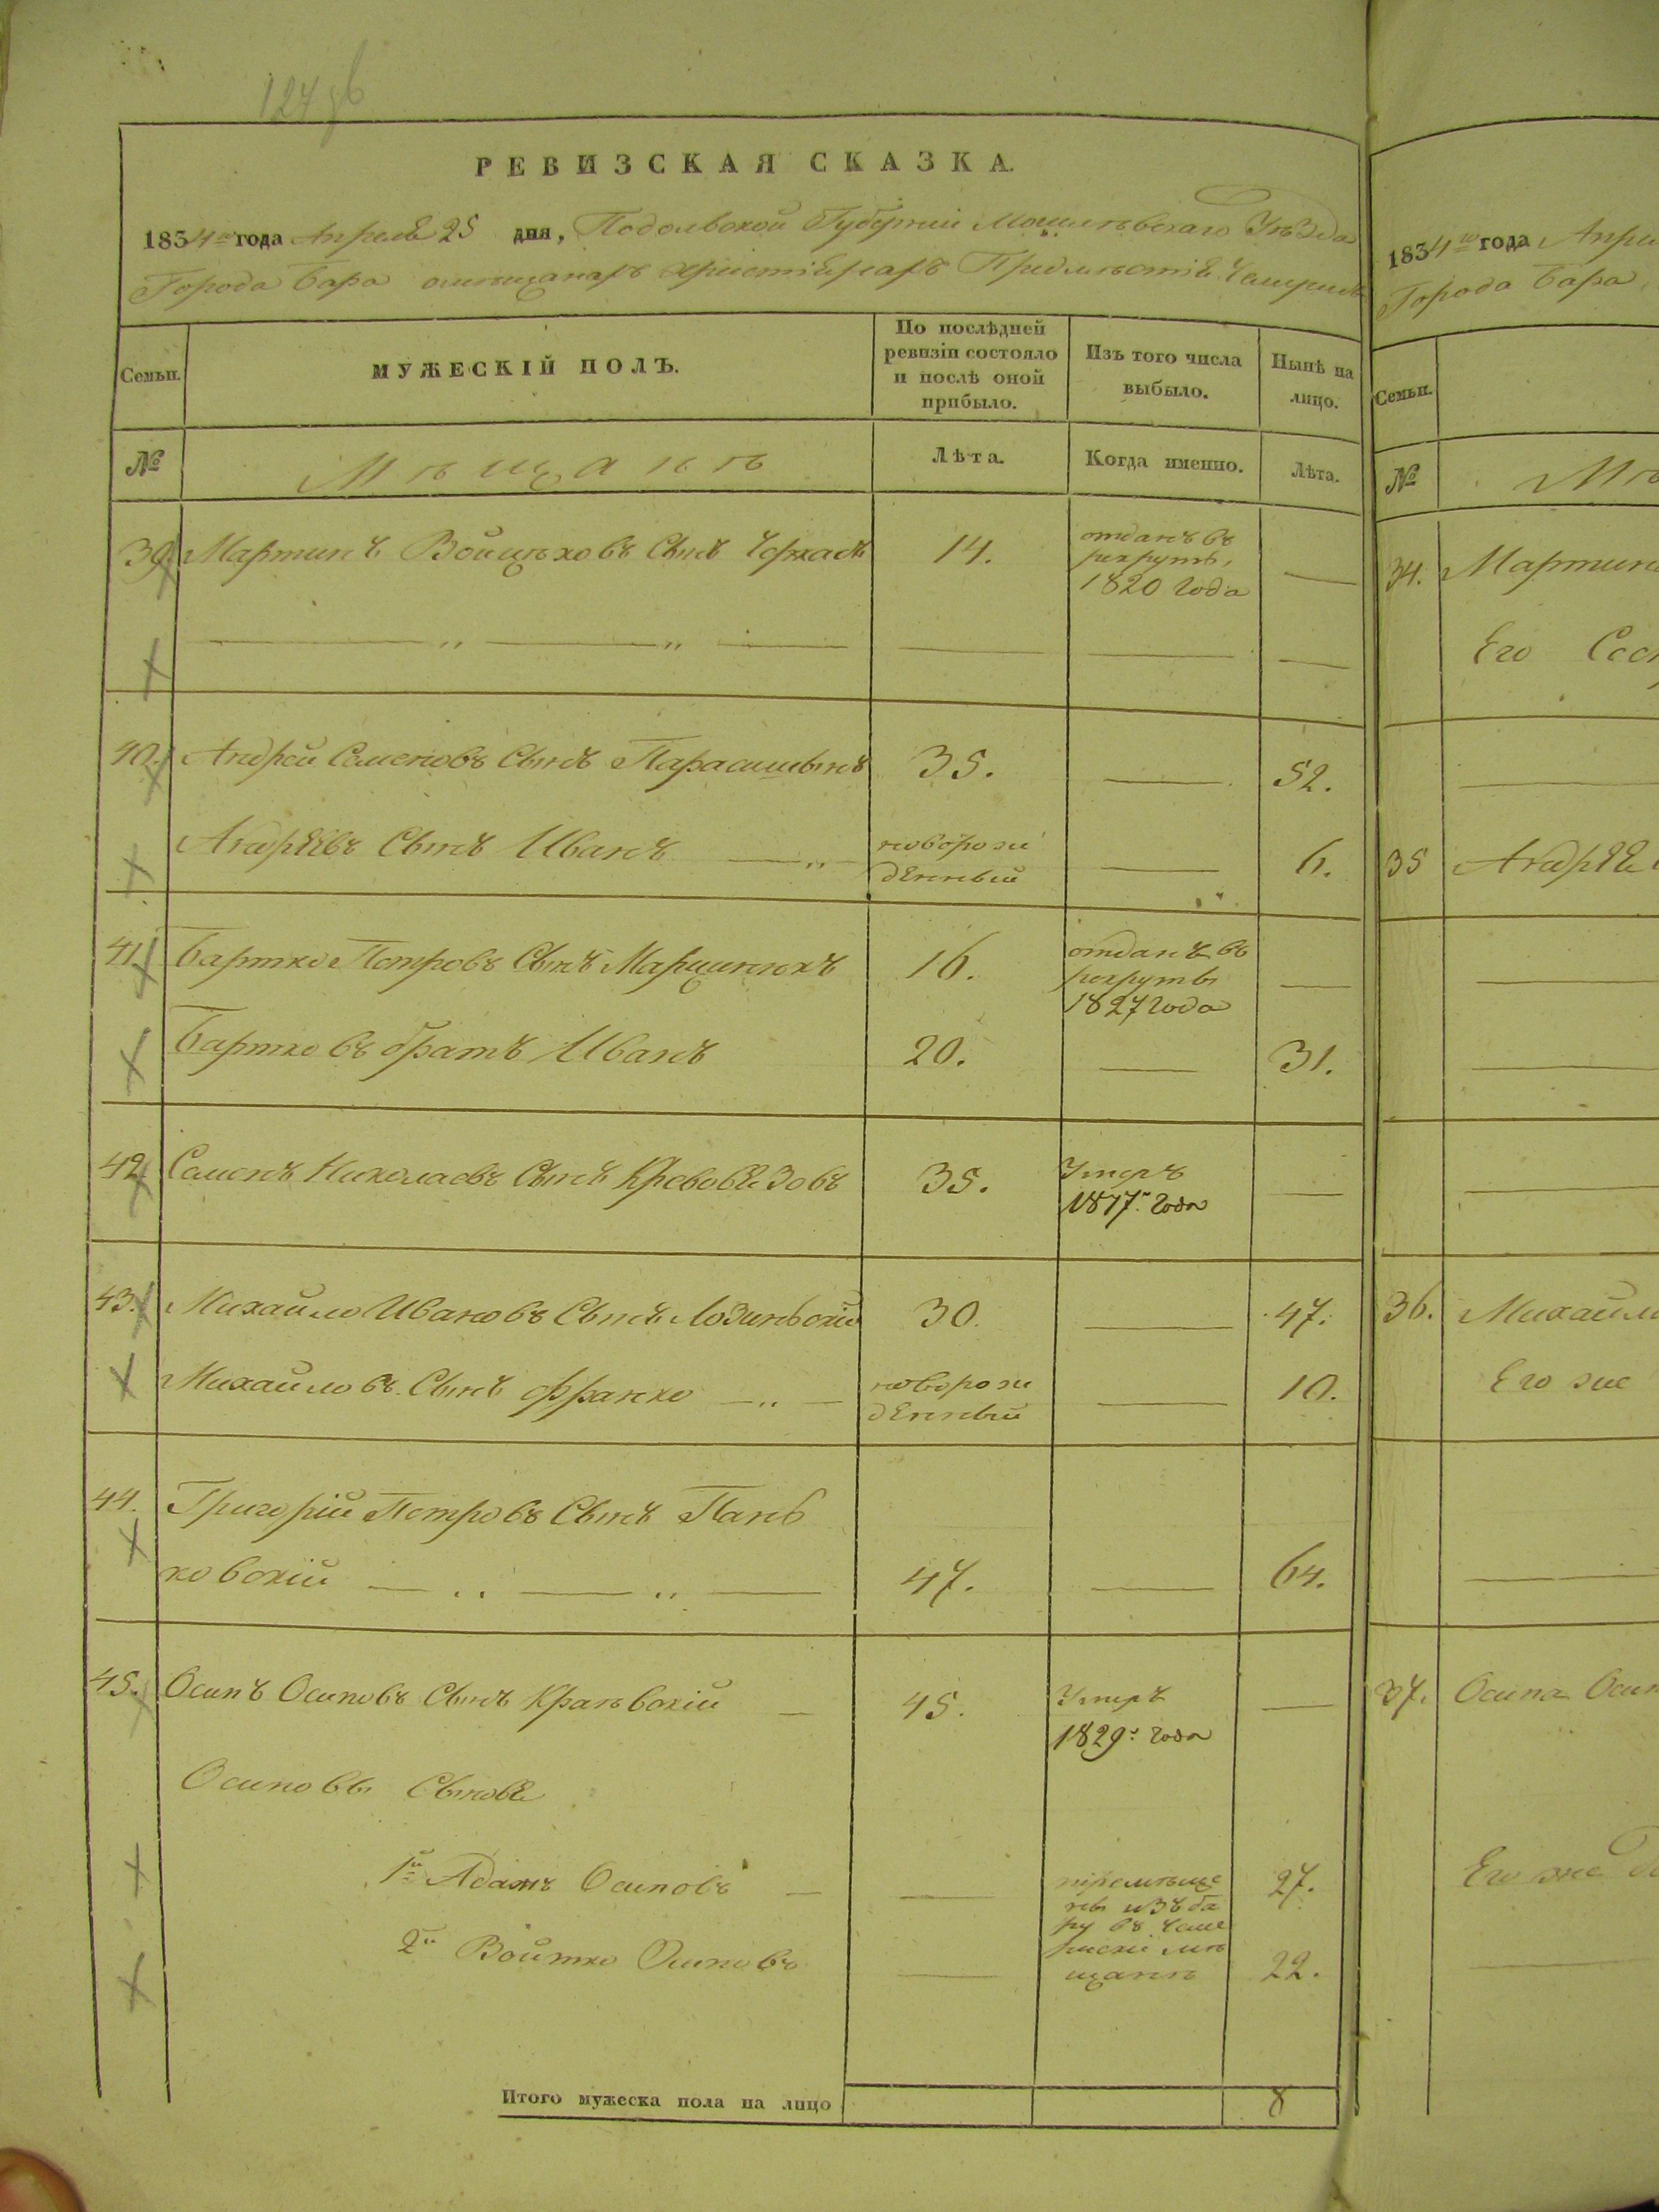 127 об
РЕВИЗСКАЯ СКАЗКА.
1834го года Апреля 25 дня, Подольской Губернии Могилевскаго Уѣзда
Города Бара омѣщанахъ христіянахъ Предмѣстія
Семьи.
МУЖЕСКІЙ ПОЛЪ.
По послѣдней ревизіи состояло и послѣ оной прибыло.
Изъ того числа выбыло.
Нынѣ на лицо.
№
Мѣщанѣ
Лѣта.
Когда именно.
Лѣта.
39. Мартинъ Войцѣховъ Сынъ 14. отданъ въ
рекруты,
1820 года
40. Андрей Семеновъ Сынъ 35. 52.
Андрѣевъ Сынъ Иванъ новорож
денный 6.
41. Бартко Петровъ Сынъ 16. отданъ въ
рекруты
1827 года
Бартковъ братъ Иванъ 20. 31.
42. Семенъ Николаевъ Сынъ 35. Умеръ
1817. года
43. Михайло Ивановъ Сынъ Лозинскій 30. 47.
Михайловъ Сынъ Франко новорож
денный 10.
44. Григорій Петровъ Сынъ Пань
ковскій 47. 64.
45. Осипъ Осиповъ Сынъ 45. Умеръ
1829: года
Осиповы Сыновья
1й Адамъ Осиповъ 27.
2й Войтко Осиповъ 22.
перемѣще
ны изъ Ба
ру въ
мѣ
щанѣ
Итого мужеска пола на лицо 8
1834го года
Города Бара
Семьи.
№
34.
Его
35
36.
Его же
37. Осипа
Его же